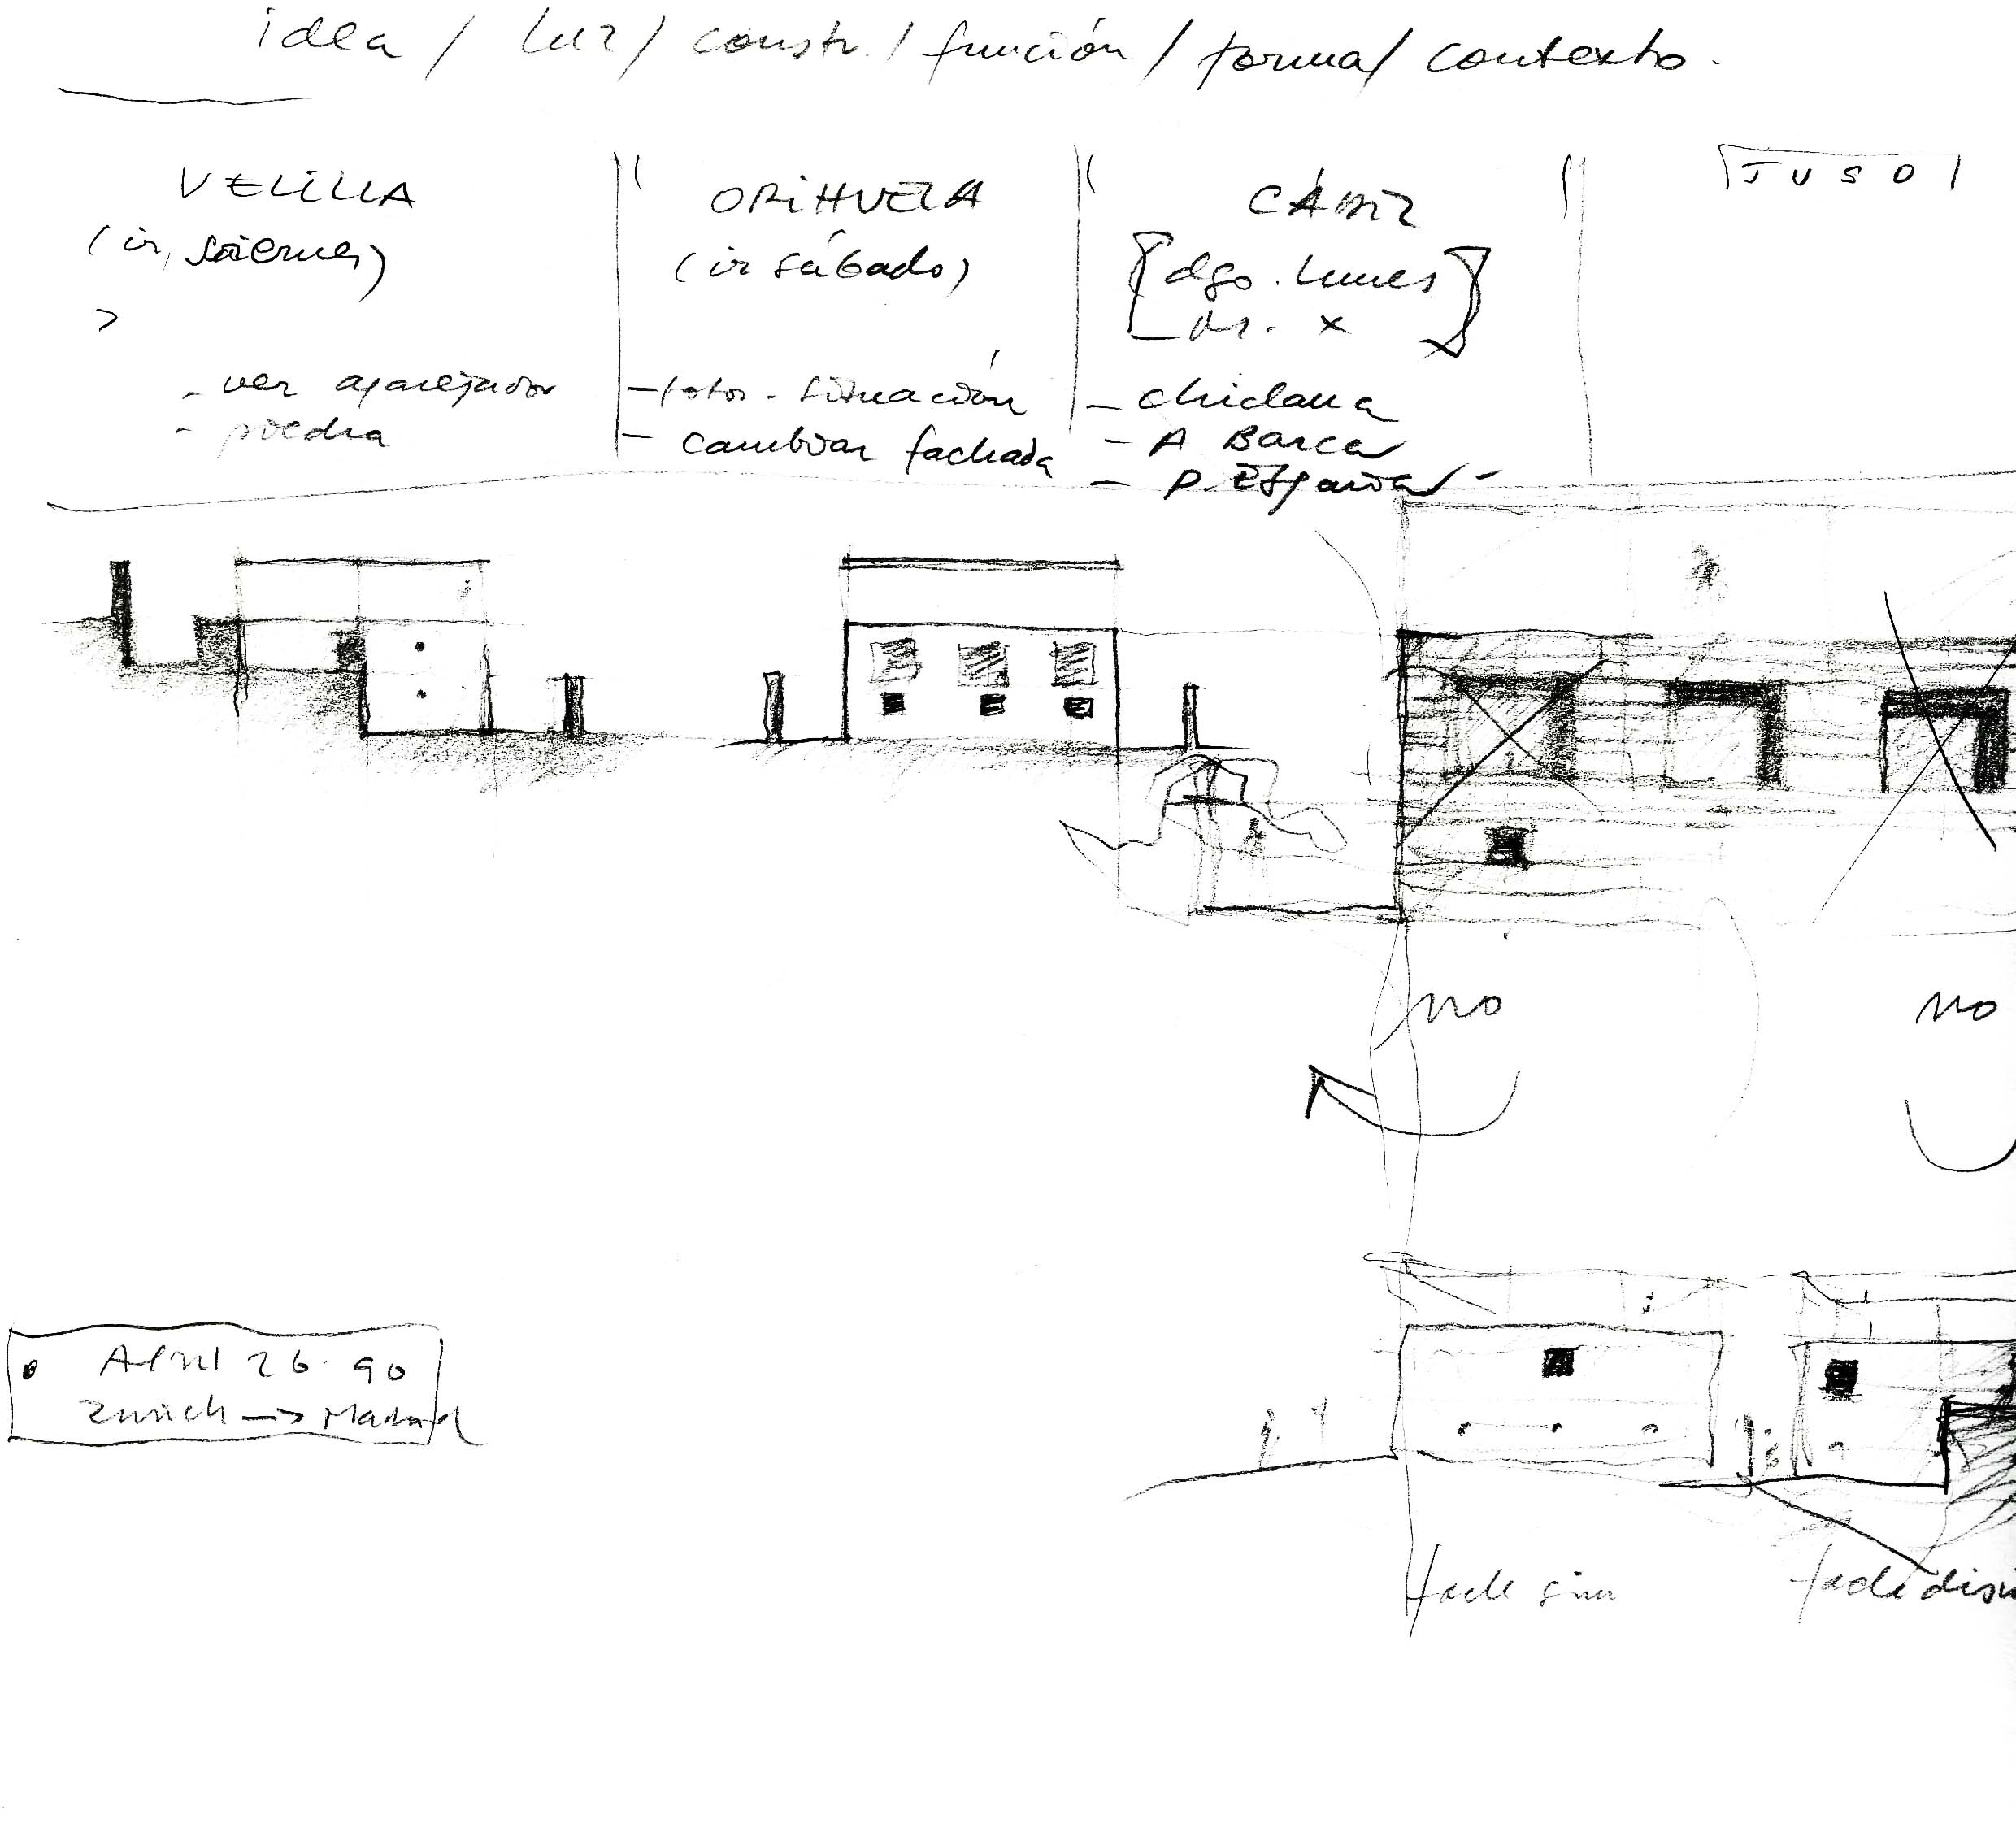 idea / luz / constr. / función / forma / contexto.
VELILLA
(ir, viernes)
- ver aparejador
- piedra
ORIHUELA
(ir sábado)
- fotos - situación
- cambiar fachada
CÁDIZ
[dgo. lunes
x]
- chiclana
- A Barca
- P. España
JUSO
no
no
April 26. 90
Zurich → Madrid